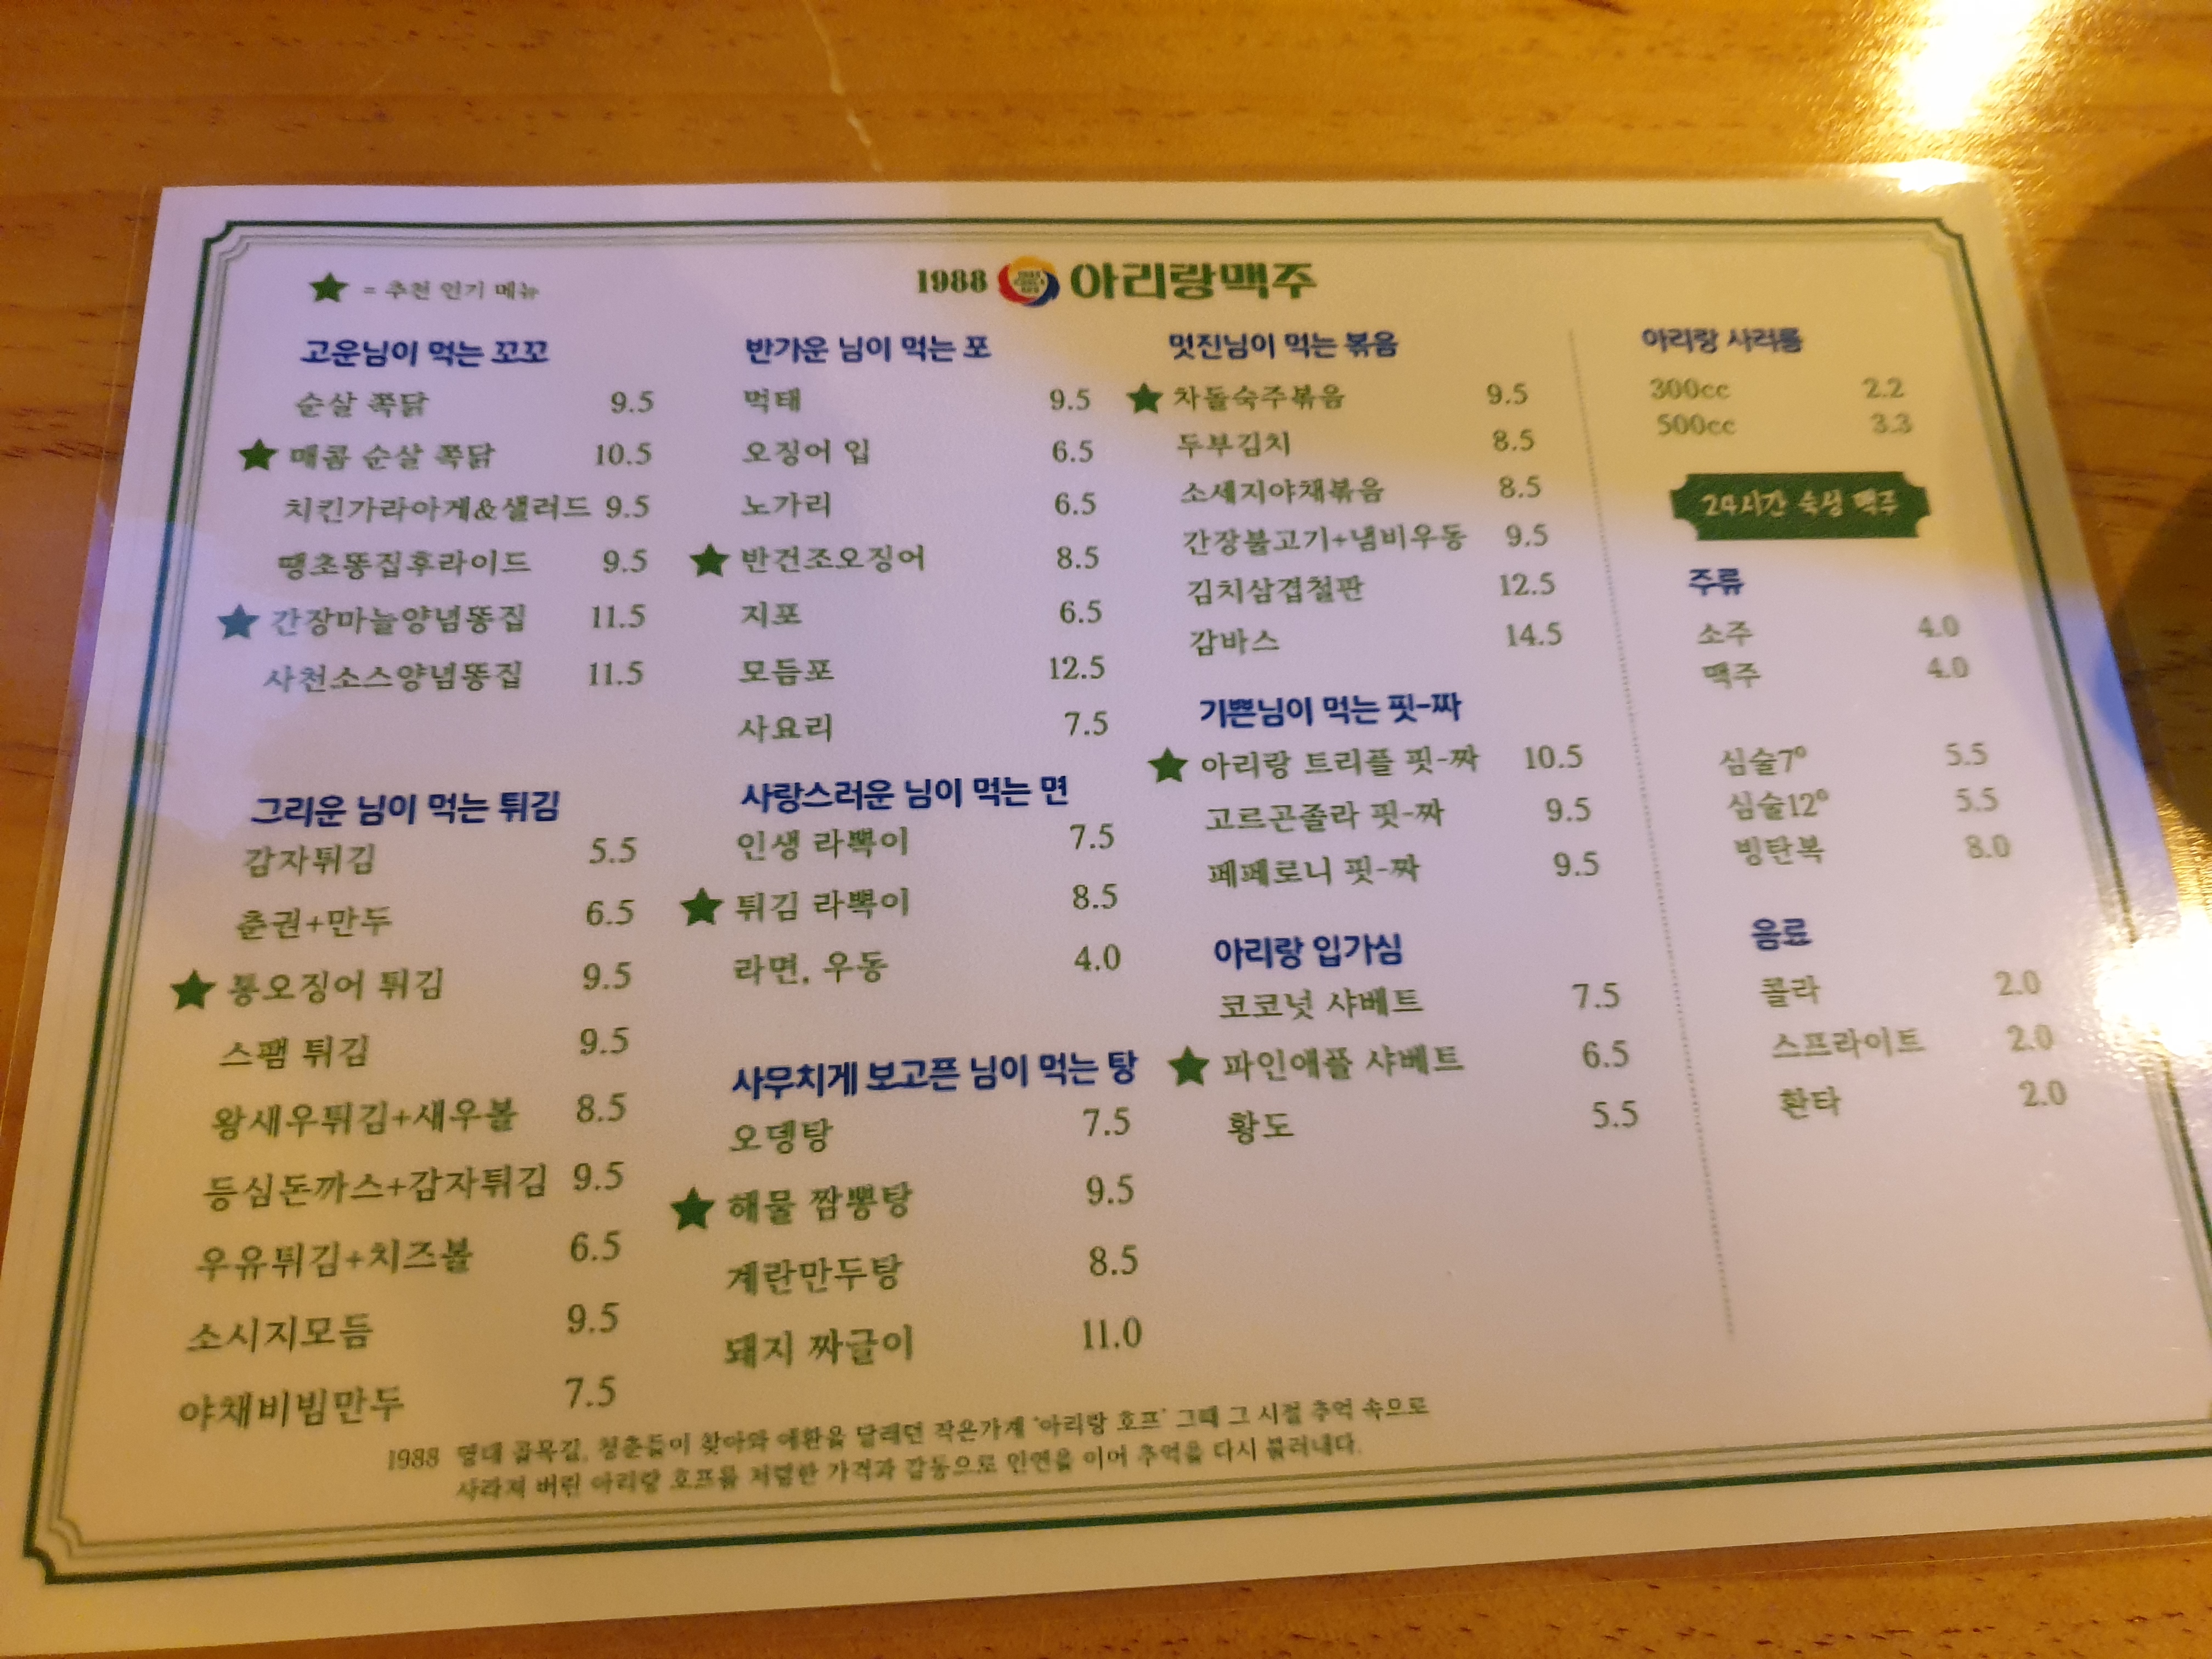 ★ = 추천 인기 메뉴
1988 아리랑맥주
고운님이 먹는 꼬꼬
순살 쪽닭 9.5
★ 매콤 순살 쪽닭 10.5
치킨가라아게&샐러드 9.5
땡초똥집후라이드 9.5
★ 간장마늘양념똥집 11.5
사천소스양념똥집 11.5
그리운 님이 먹는 튀김
감자튀김 5.5
춘권+만두 6.5
★ 통오징어 튀김 9.5
스팸 튀김 9.5
왕새우튀김+새우볼 8.5
등심돈까스+감자튀김 9.5
우유튀김+치즈볼 6.5
소시지모듬 9.5
야채비빔만두 7.5
반가운 님이 먹는 포
먹태 9.5
오징어 입 6.5
노가리 6.5
★ 반건조오징어 8.5
지포 6.5
모듬포 12.5
사요리 7.5
사랑스러운 님이 먹는 면
인생 라뽁이 7.5
★ 튀김 라뽁이 8.5
라면, 우동 4.0
사무치게 보고픈 님이 먹는 탕
오뎅탕 7.5
★ 해물 짬뽕탕 9.5
계란만두탕 8.5
돼지 짜글이 11.0
멋진님이 먹는 볶음
★ 차돌숙주볶음 9.5
두부김치 8.5
소세지야채볶음 8.5
간장불고기+냄비우동 9.5
김치삼겹철판 12.5
감바스 14.5
기쁜님이 먹는 핏-짜
★ 아리랑 트리플 핏-짜 10.5
고르곤졸라 핏-짜 9.5
페페로니 핏-짜 9.5
아리랑 입가심
코코넛 샤베트 7.5
★ 파인애플 샤베트 6.5
황도 5.5
아리랑 사러룸
300cc 2.2
500cc 3.3
24시간 숙성 맥주
주류
소주 4.0
맥주 4.0
심술7° 5.5
심술12° 5.5
빙탄복 8.0
음료
콜라 2.0
스프라이트 2.0
환타 2.0
1988 영대 골목길, 청춘들이 찾아와 애환을 달래던 작은가게 '아리랑 호프' 그때 그 시절 추억 속으로
사라져 버린 아리랑 호프를 저렴한 가격과 감동으로 인연을 이어 추억을 다시 불러내다.